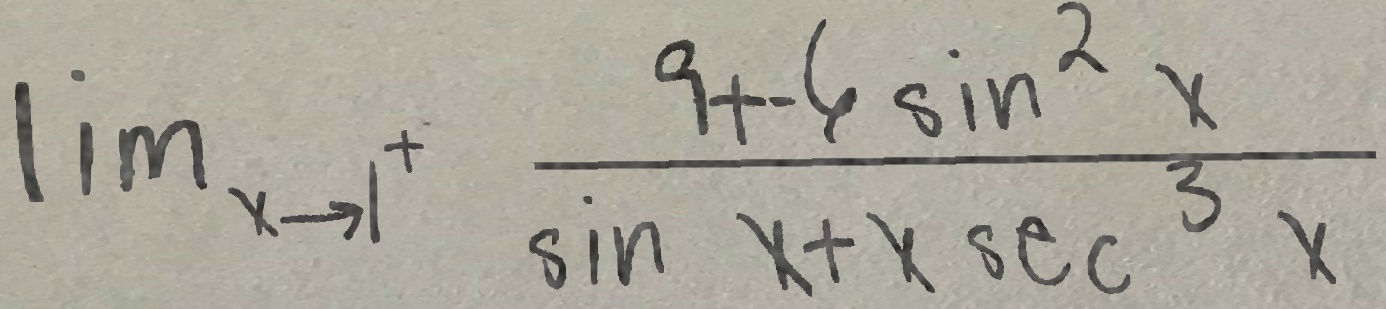 \lim_{x \to 1^+} \frac{9 + -6 \sin^2 x}{\sin x + x \sec^3 x}